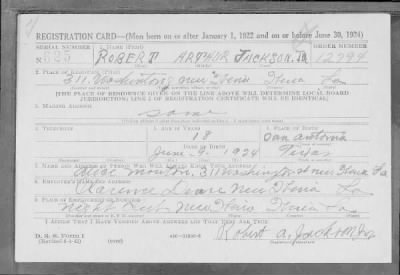 REGISTRATION CARD—(Men born on or after January 1, 1922 and on or before June 30, 1924)
SERIAL NUMBER 1. NAME (Print) ORDER NUMBER
N 625 ROBERT ARTHUR JACKSON, JR 12794
2. PLACE OF RESIDENCE (Print)
311 Washington New Iberia Iberia La
[THE PLACE OF RESIDENCE GIVEN ON THE LINE ABOVE WILL DETERMINE LOCAL BOARD
JURISDICTION; LINE 2 OF REGISTRATION CERTIFICATE WILL BE IDENTICAL]
3. MAILING ADDRESS
Same
4. TELEPHONE 5. AGE IN YEARS 6. PLACE OF BIRTH
18 San Antonio
DATE OF BIRTH
June 9 1924 Texas
7. NAME AND ADDRESS OF PERSON WHO WILL ALWAYS KNOW YOUR ADDRESS
Alice Mouton, 311 Washington st New Iberia La
8. EMPLOYER'S NAME AND ADDRESS
Clarence New Iberia La
9. PLACE OF EMPLOYMENT OR BUSINESS
Night Club New Iberia Iberia La
I AFFIRM THAT I HAVE VERIFIED ABOVE ANSWERS AND THAT THEY ARE TRUE.
D. S. S. Form 1
(Revised 6-9-42) (over)
Robert A. Jackson Jr